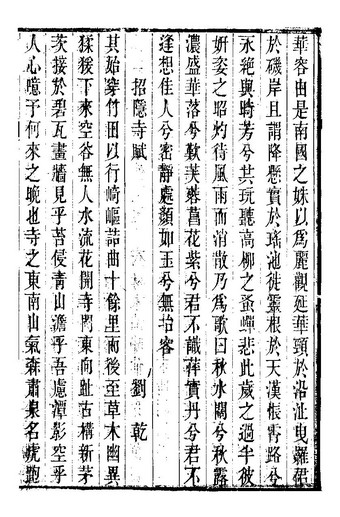 華容由是南國之姝以爲麗觀延華頸於沿沚曳羅裙
於磯岸且謂降懸實於瑤池徙靈根於天漢根霄路兮
永絶與時芳兮其玩聽高柳之蚤蟬悲此歲之過半彼
妍姿之昭灼待風雨而消散乃爲歌曰秋水闊兮秋露
濃盛華落兮歎芙蓉菖花紫兮君不識萍實丹兮君不
逢想佳人兮密靜處顏如玉兮無怡容
招隱寺賦 劉乾
其始穿竹田以行崎嶇詰曲十餘里而後至草木幽異
猱猨下來空谷無人水流花開寺門東向趾古構新茅
茨接於碧瓦畫牆見乎苔侵青山澹乎吾慮潭影空乎
人心噫予何來之晚也寺之東南山氣森肅泉名虎跑